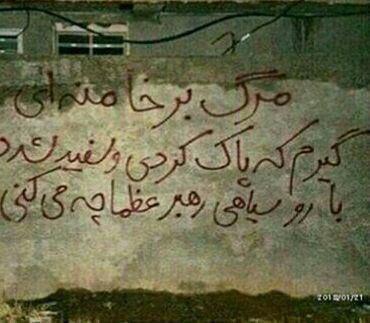 مرگ بر خامنه‌ای
گیرم که پاک کردی و سفید شد
با رو سیاهی رهبر عظما چه می کنی
2018/01/21